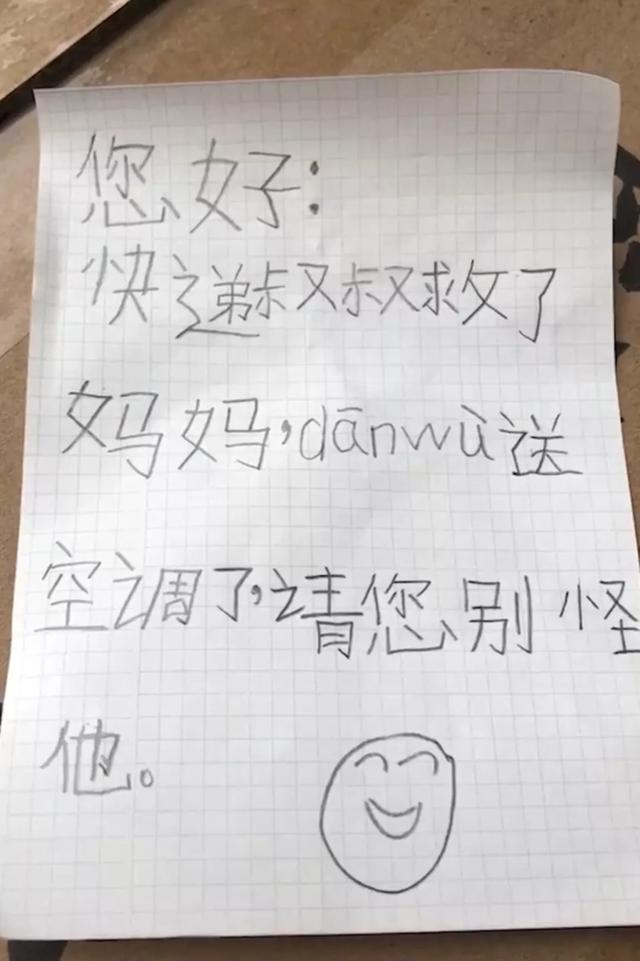 您好：
快递叔叔救了
妈妈，dānwù送
空调了，请您别怪
他。